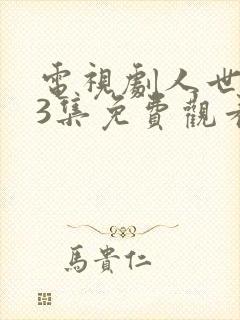 電視劇人世
3集免費觀看
馬貴仁